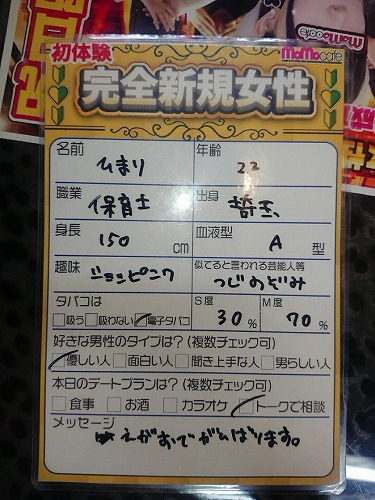 初体験
MoMocafe
完全新規女性
名前 ひまり
年齢 22
職業 保育士
出身 埼玉
身長 150 cm
血液型 A 型
趣味 ショッピング
似てると言われる芸能人等 つじのぞみ
タバコは
□吸う □吸わない ☑電子タバコ
S度 30 %
M度 70 %
好きな男性のタイプは?(複数チェック可)
☑優しい人 □面白い人 □聞き上手な人 □男らしい人
本日のデートプランは?(複数チェック可)
□食事 □お酒 □カラオケ ☑トークで相談
メッセージ
えがおでがんばります。